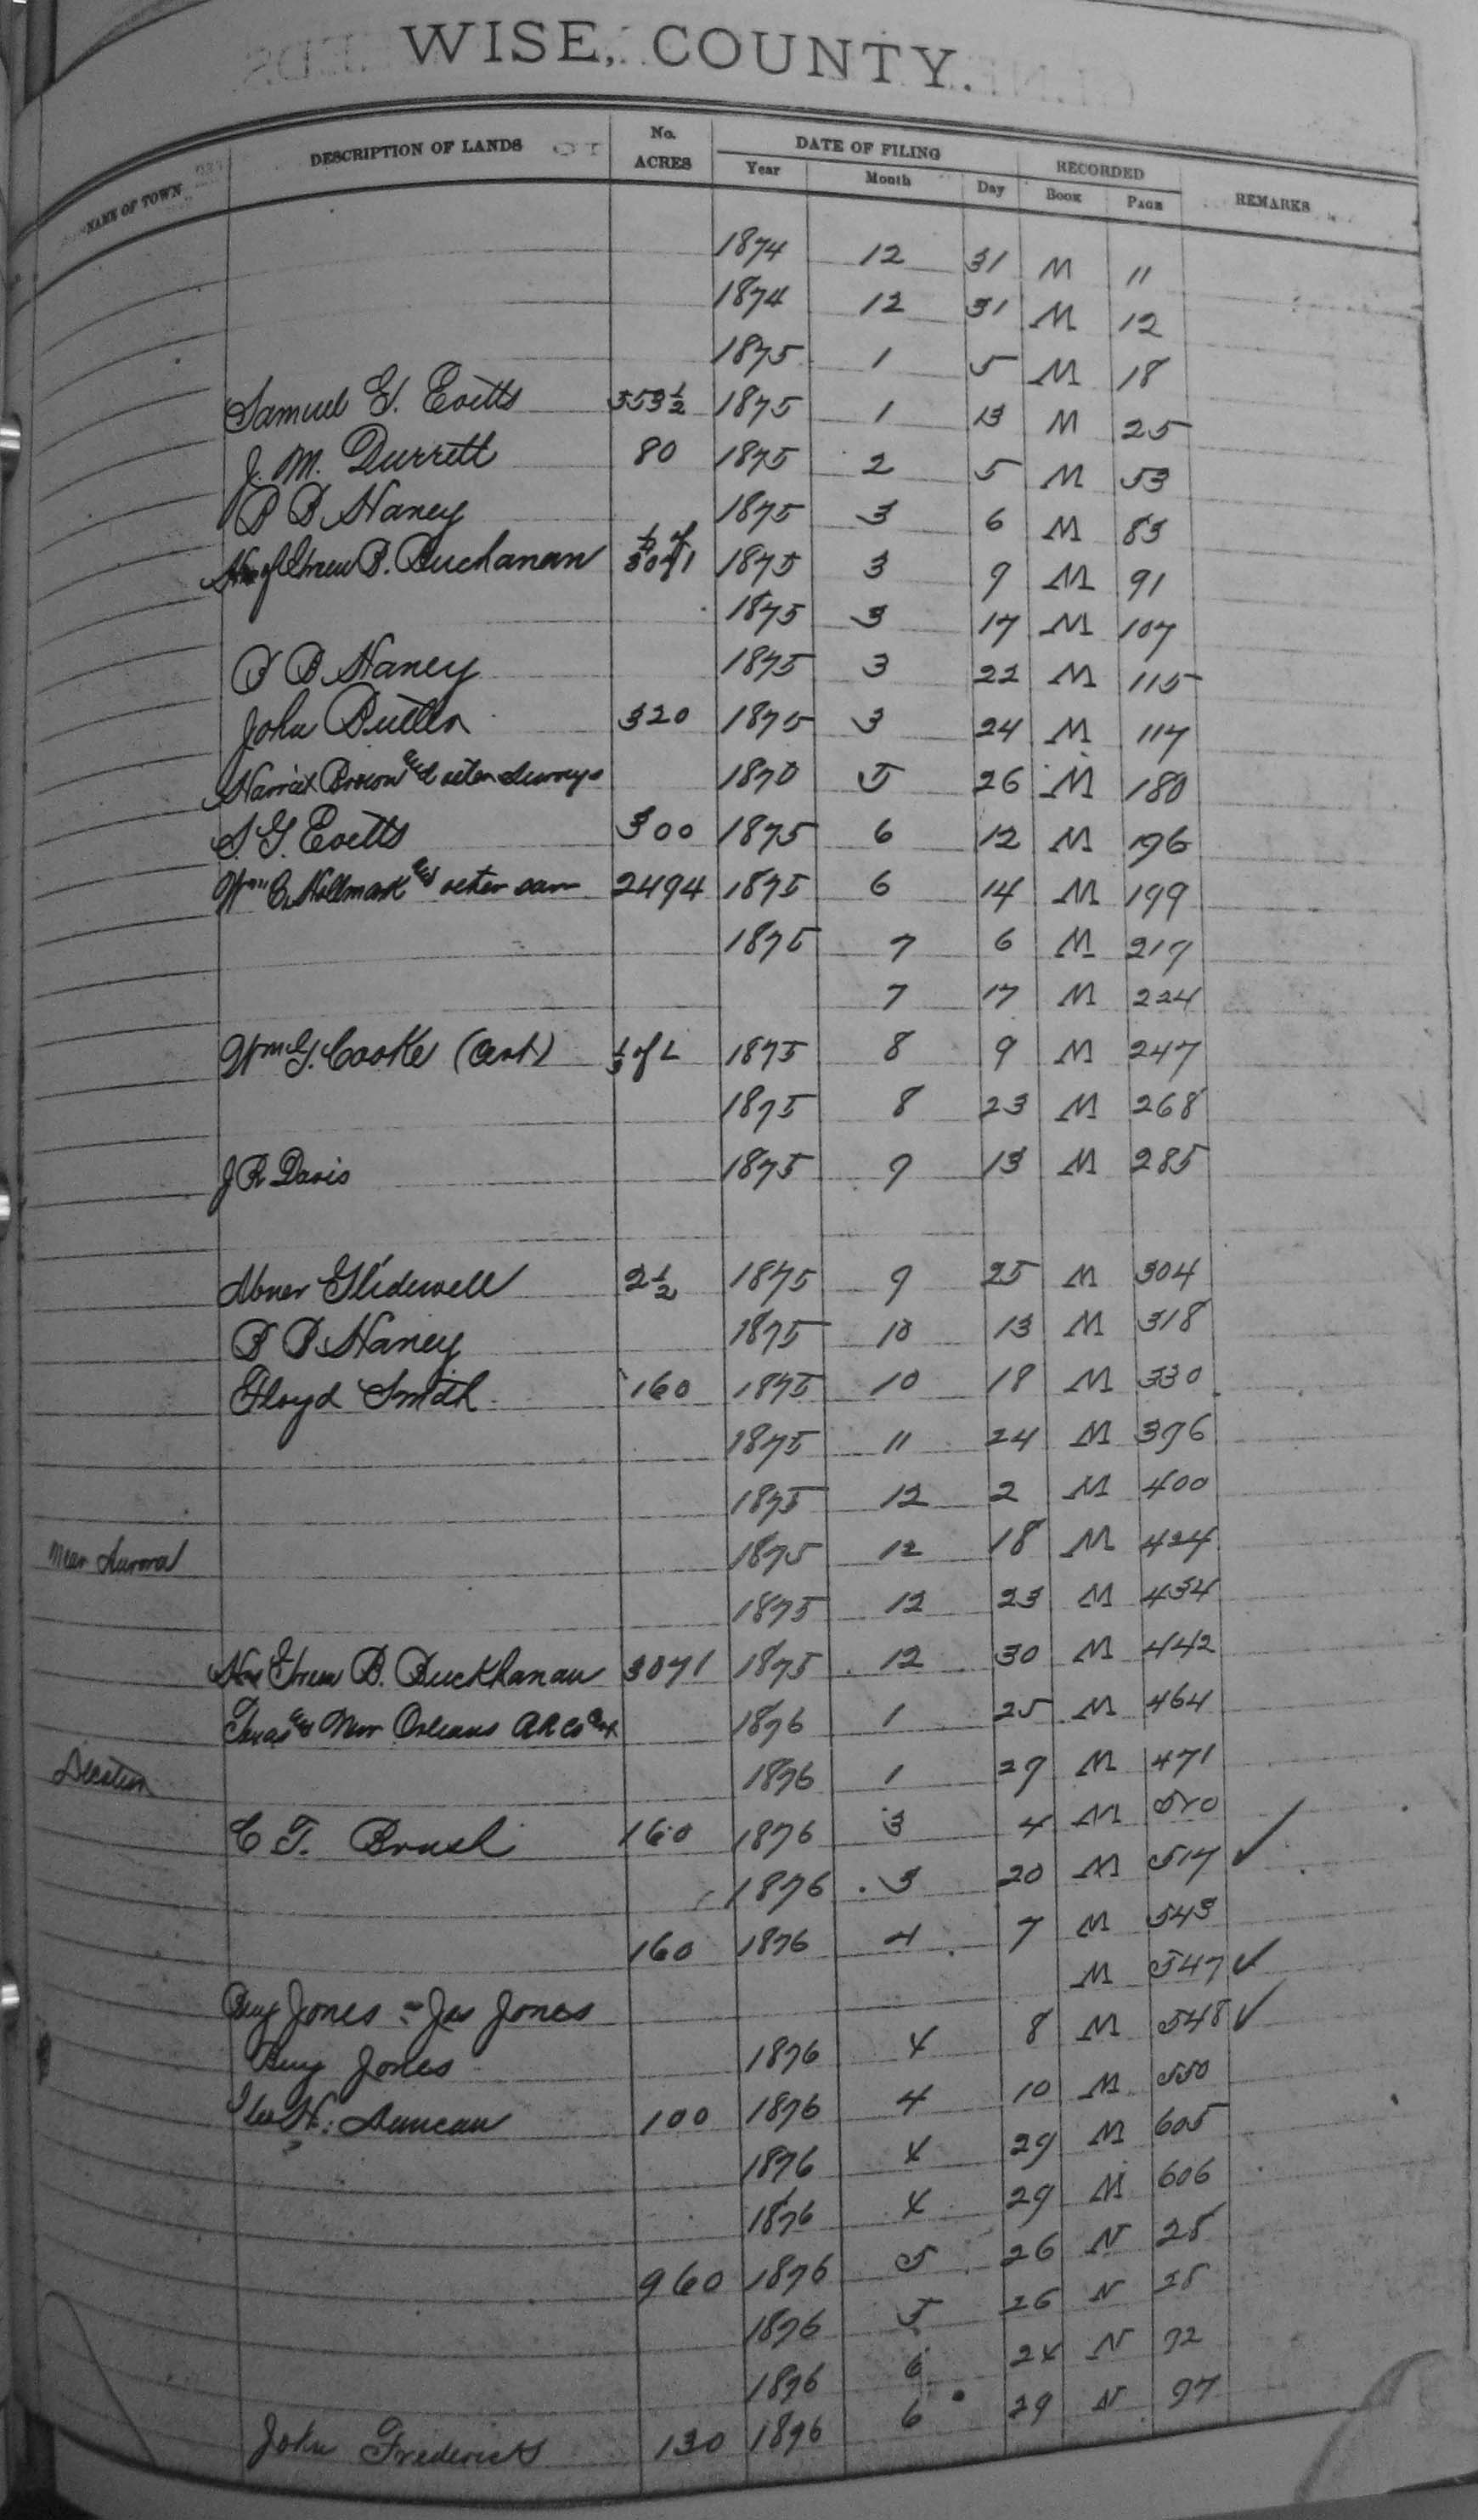 WISE, COUNTY.
NAME OF TOWN DESCRIPTION OF LANDS No. ACRES DATE OF FILING RECORDED REMARKS
Year Month Day Book Page
1874 12 31 M 11
1874 12 31 M 12
1875 1 5 M 18
Samuel G. Evitts 353½ 1875 1 13 M 25
J. M. Durrett 80 1875 2 5 M 53
B B Haney 1875 3 6 M 83
B. Buchanan 1875 3 9 M 91
1875 3 17 M 107
B B Haney 1875 3 22 M 115
John Butler 320 1875 3 24 M 117
Harriet Brown and other Surveys 5 26 M 180
S. G. Evitts 300 1875 6 12 M 196
Wm C. Hallmark and other sur 2494 1875 6 14 M 199
1875 7 6 M 217
7 17 M 224
Wm G. Cooke (Cert) ⅓ of L 1875 8 9 M 247
1875 8 23 M 268
J R Davis 1875 9 13 M 285
Abner Glidewell 2½ 1875 9 25 M 304
B B Haney 1875 10 13 M 318
Floyd Smith 160 1875 10 18 M 330
1875 11 24 M 376
1875 12 2 M 400
Near Aurora 1875 12 18 M 424
1875 12 23 M 434
B. Buckhanan 3071 1875 12 30 M 442
Texas and New Orleans RR Co Cert 1876 1 25 M 464
Decatur 1876 1 29 M 471
C T. Brush 160 1876 3 4 M
1876 3 20 M 517 ✓
160 1876 4 7 M 543
Benj Jones = Jas Jones M 547 ✓
Benj Jones 1876 4 8 M 548 ✓
Geo H. Duncan 100 1876 4 10 M 550
1876 4 29 M 605
1876 4 29 M 606
960 1876 5 26 N 25
1876 5 26 N 28
1876 6 24 N 72
John Fredericks 130 1876 6 29 N 77